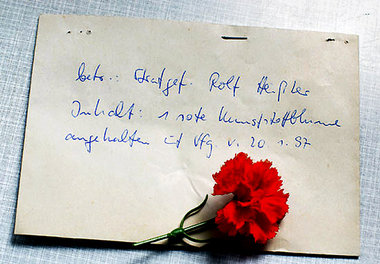 betr.: Strafgef. Rolf Heißler
Inhalt: 1 rote Kunststoffblume
angehalten lt Vfg v. 20.1.87